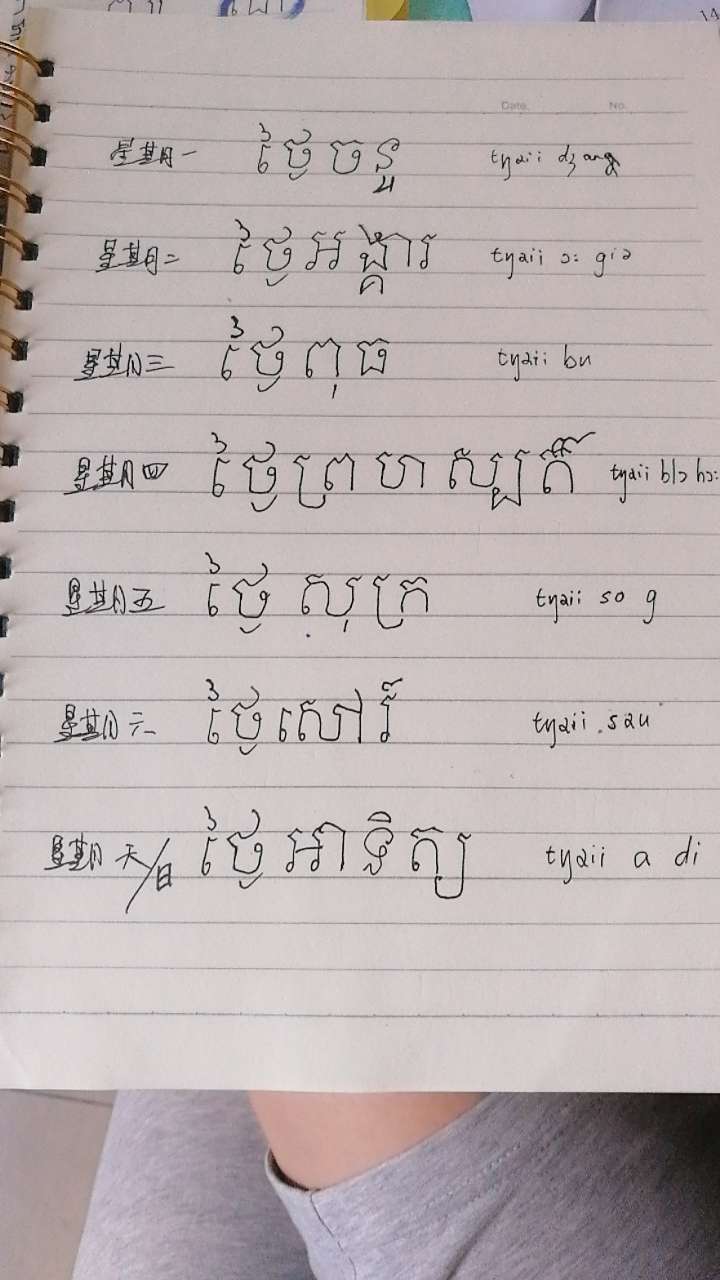 Date. No.
星期一 ថ្ងៃចន្ទ tŋaii dʒang
星期二 ថ្ងៃអង្គារ tŋaii ɔ: giə
星期三 ថ្ងៃពុធ tŋaii bu
星期四 ថ្ងៃព្រហស្បតិ៍ tŋaii blɔ hɔ:
星期五 ថ្ងៃសុក្រ tŋaii so g
星期六 ថ្ងៃសៅរ៍ tŋaii sau
星期天/日 ថ្ងៃអាទិត្យ tŋaii a di